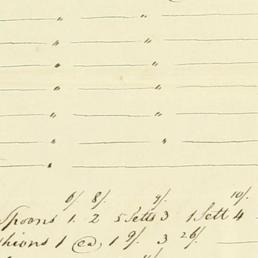 " "
" "
" "
" "
" "
" "
"
6/. 8/. 9/. 10/.
Spoons 1. 2 5 Setts 3 1 Sett 4
shions 1 @, 1 9/. 3 26/.